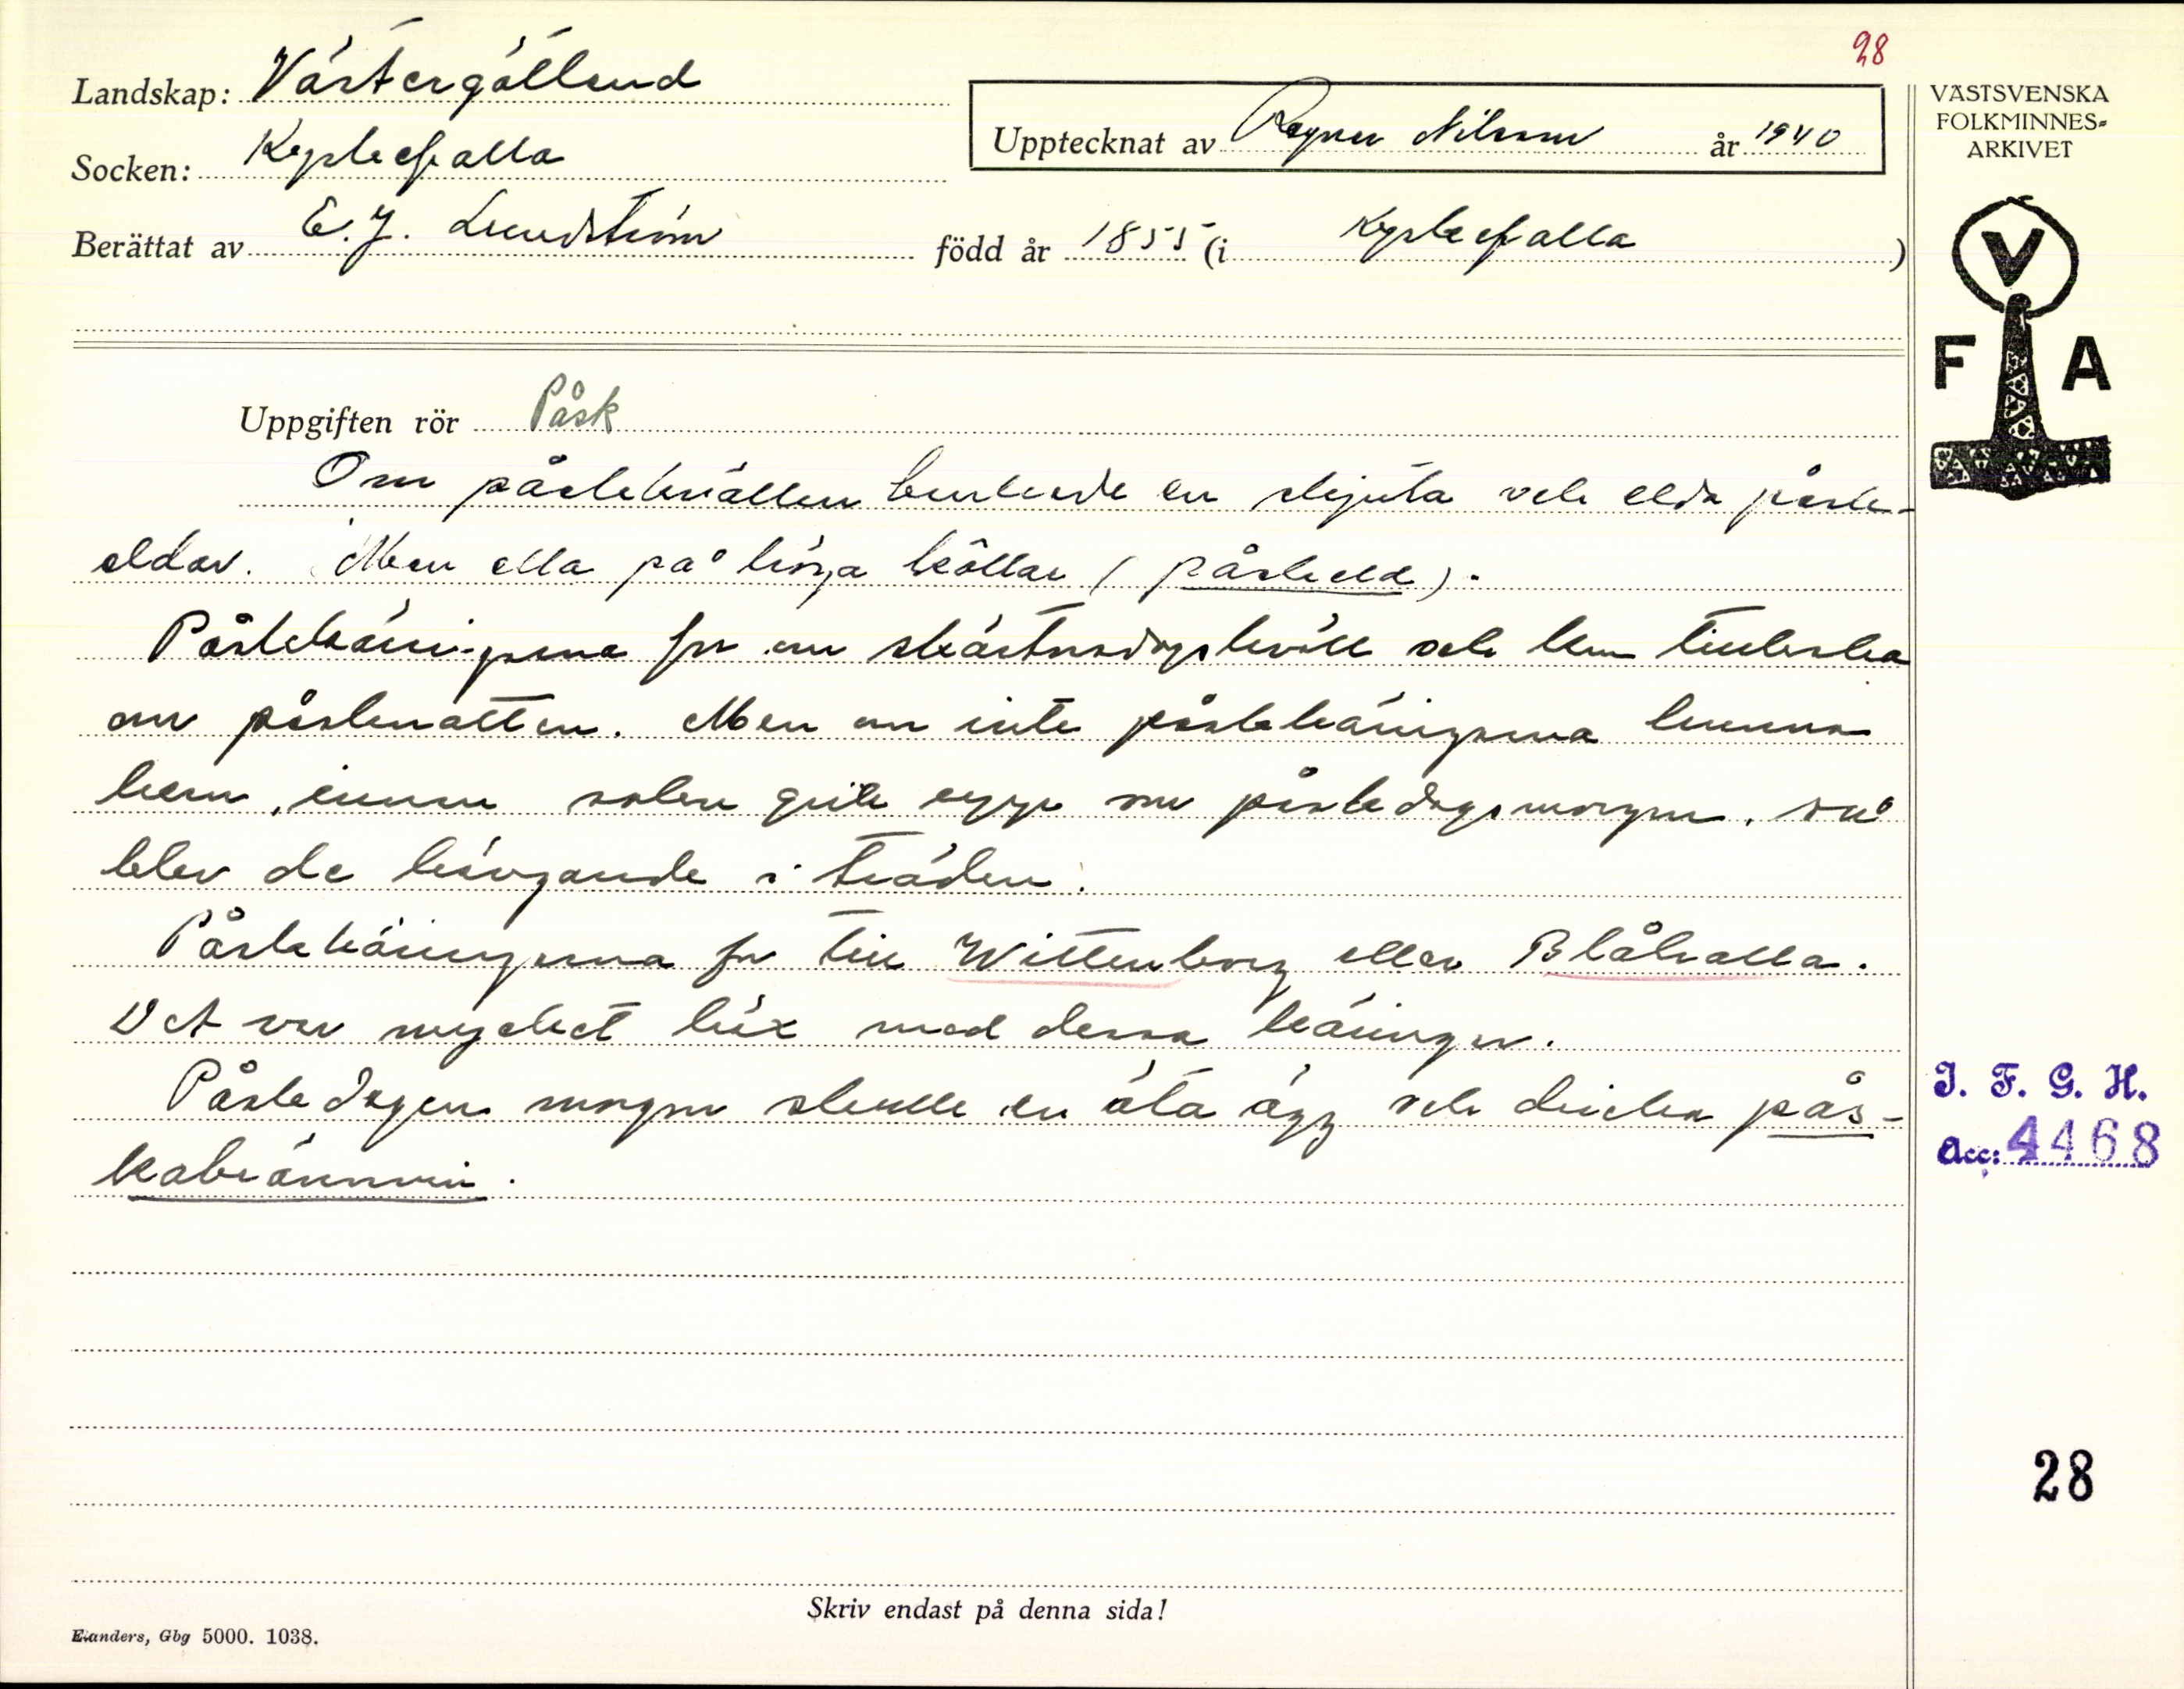 28
Landskap: Västergötland
Socken: Kyrkefalla
Upptecknat av Ragnar Nilsson år 1940
Berättat av E. J. Lundström född år 1855 (i Kyrkefalla)
VÄSTSVENSKA
FOLKMINNES-
ARKIVET
V
F A
Uppgiften rör Påsk
Om påskekvällen brukade en skjuta och elda påsk-
eldar. Men elda på höga kullar (påskeeld).
Påskekäringarna for om skärtorsdagskväll och kom tillbaka
om påskenatten. Men om inte påskekäringarna kunna
hem, innan solen gick upp om påskedagsmorgon, så
blev de hängande i träden.
Påskekäringarna for till Wittenberg eller Blåkulla.
Det var mycket häx med dessa käringar.
Påskedagens morgon skulle en äta ägg och dricka pås-
kabrännvin.
I. F. G. H.
Acc: 4468
28
Skriv endast på denna sida!
Elanders, Gbg 5000. 1038.